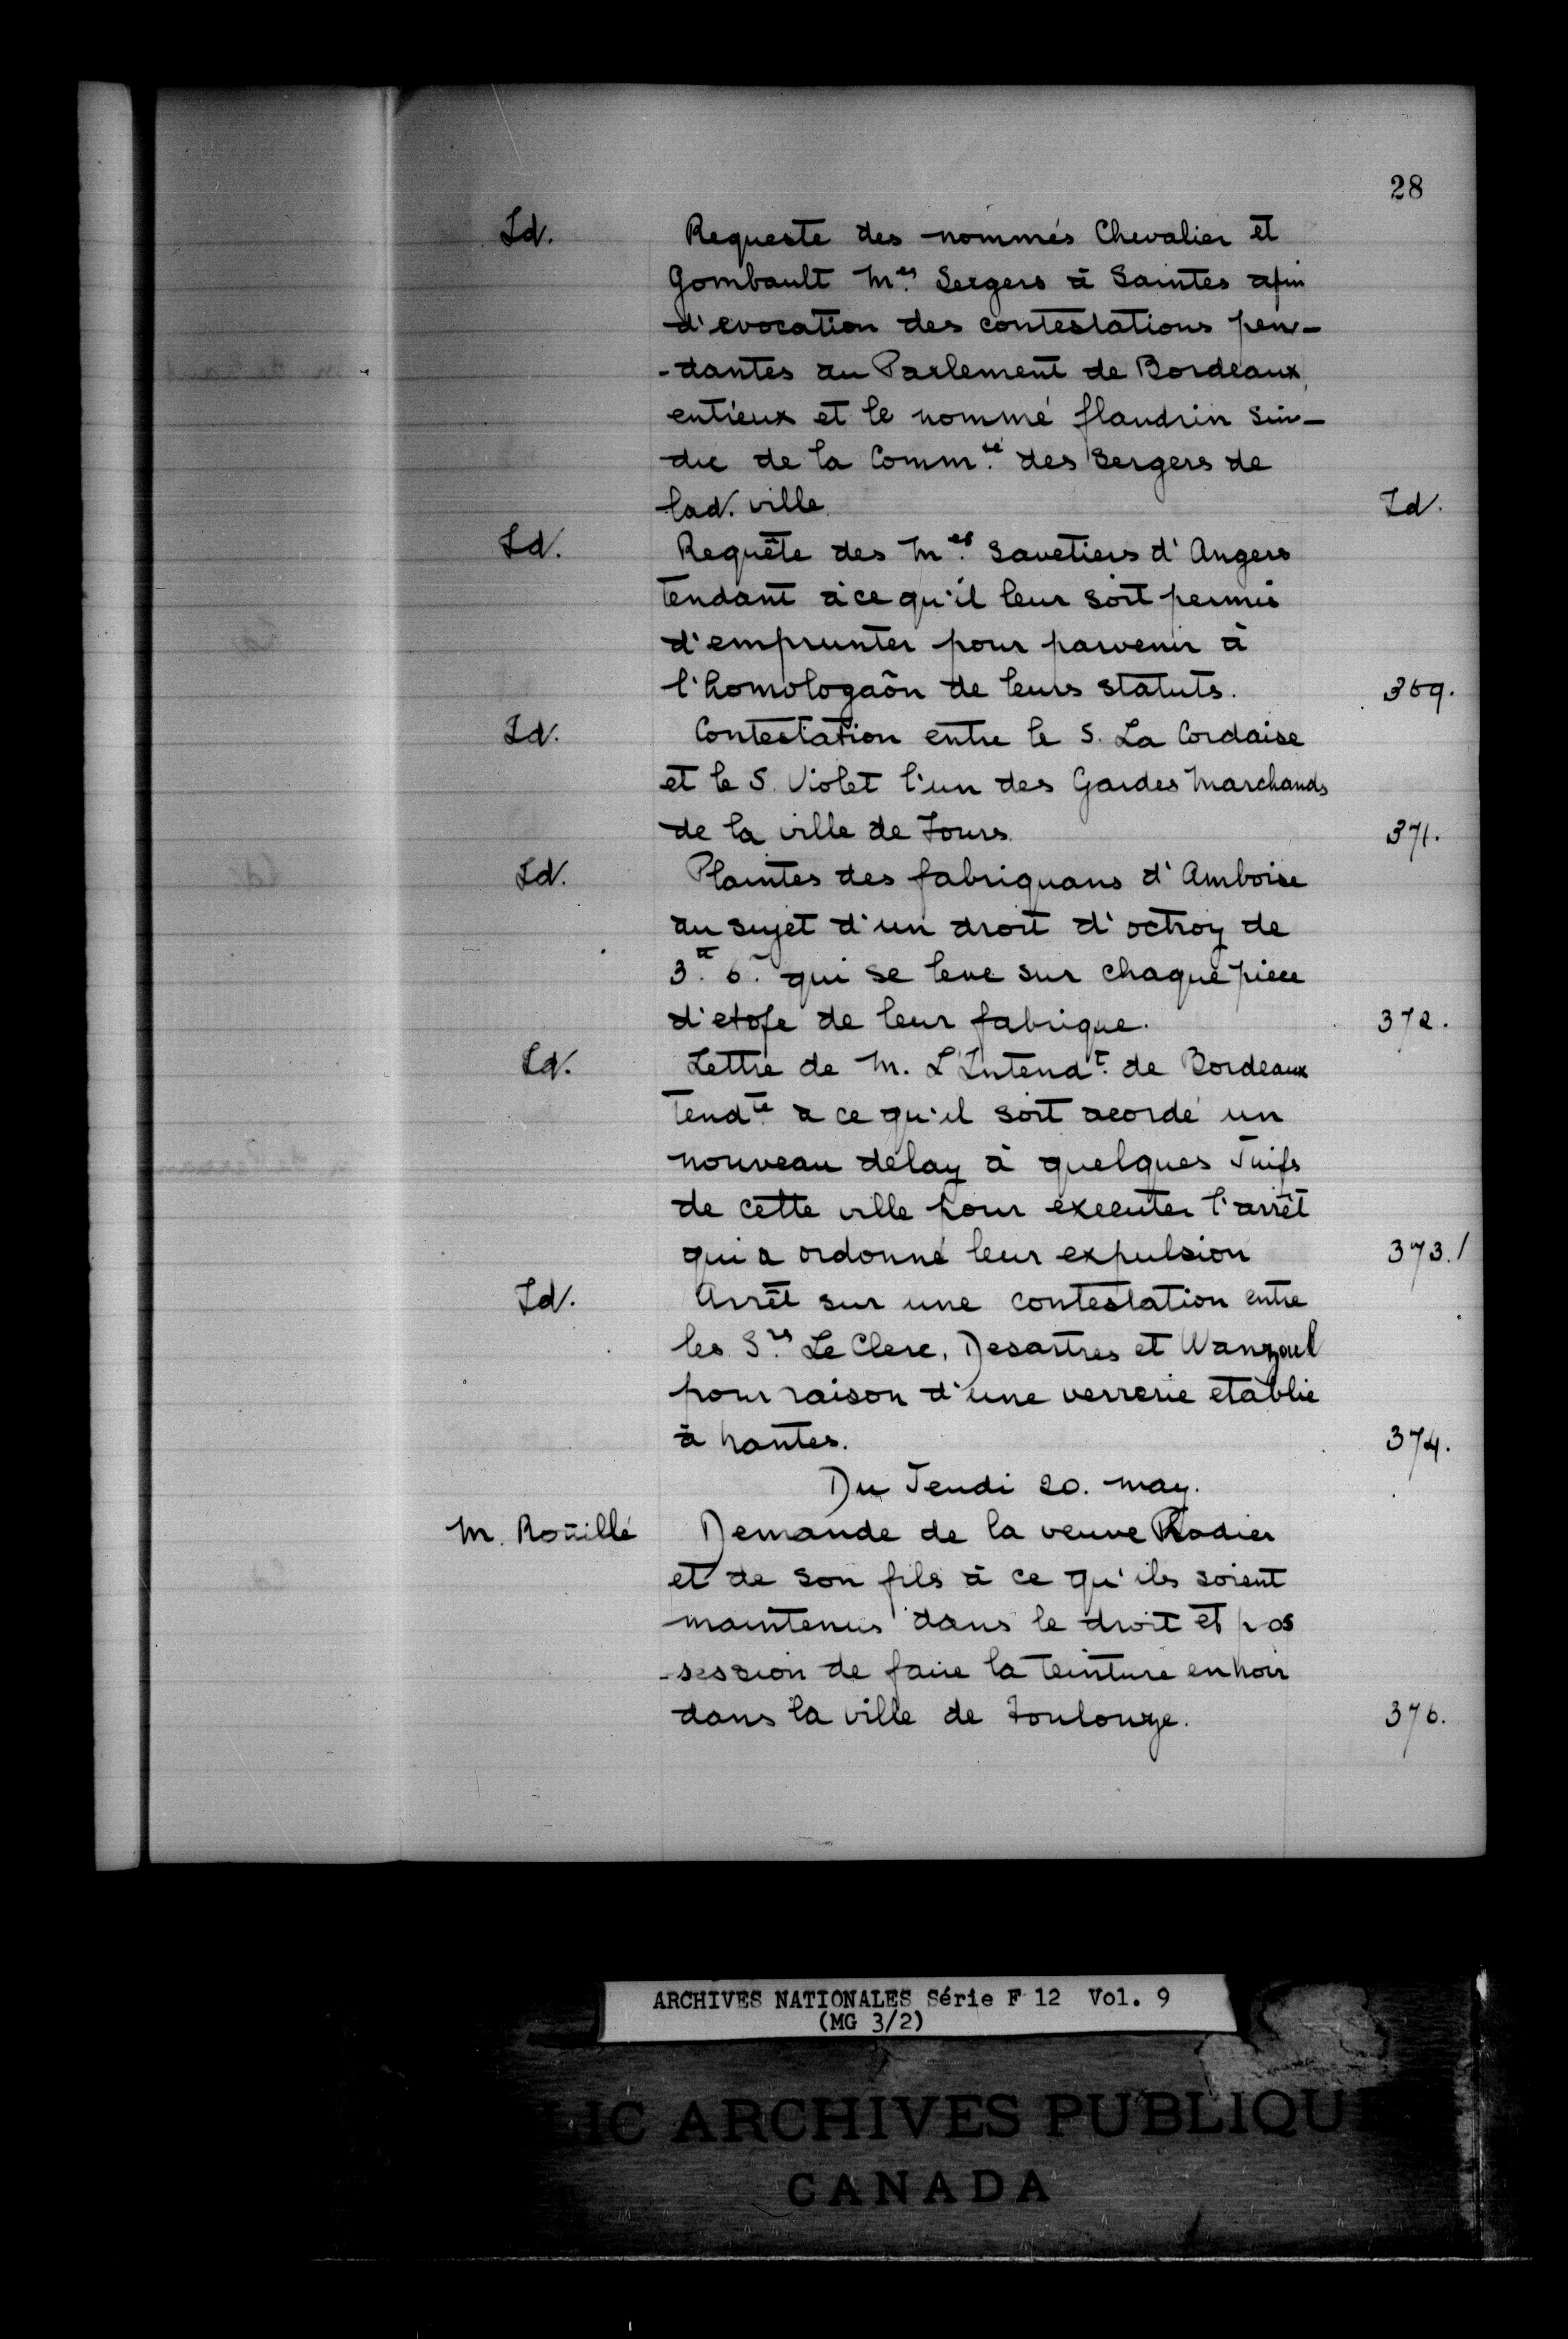 28
Id. Requeste des nommés Chevalier et
Gombault Mes. Sergers à Saintes afin
d'evocation des contestations pen-
-dantes au Parlement de Bordeaux,
entr'eux et le nommé flandrin Sin-
dic de la Commté. des Sergers de
lad. ville. Id.
Id. Requête des Mes. Savetiers d'Angers
tendant à ce qu'il leur soit permis
d'emprunter pour parvenir à
l'homologaôn de leurs statuts. 369.
Id. Contestation entre le S. La Cordaise
et le S. Violet l'un des Gardes Marchands
de la ville de Tours. 371.
Id. Plaintes des fabriquans d'Amboise
au sujet d'un droit d'octroy de
3. 6. qui se leve sur chaque piece
d'etofe de leur fabrique. 372.
Id. Lettre de M. L'Intendt. de Bordeaux
tendte. a ce qu'il soit acordé un
nouveau délay à quelques Juifs
de cette ville pour executer l'arrêt
qui a ordonné leur expulsion 373./
Id. Arrêt sur une contestation entre
les Srs. Le Clerc, Desartres et Wanzoul
pour raison d'une verrerie etablie
à nantes. 374.
Du Jeudi 20. may.
M. Roüillé Demande de la veuve Rodier
et de son fils à ce qu'ils soient
maintenus dans le droit et pos
-session de faire la teinture en noir
dans la ville de Toulouze. 376.
ARCHIVES NATIONALES Série F 12 Vol. 9
(MG 3/2)
LIC ARCHIVES PUBLIQU
CANADA